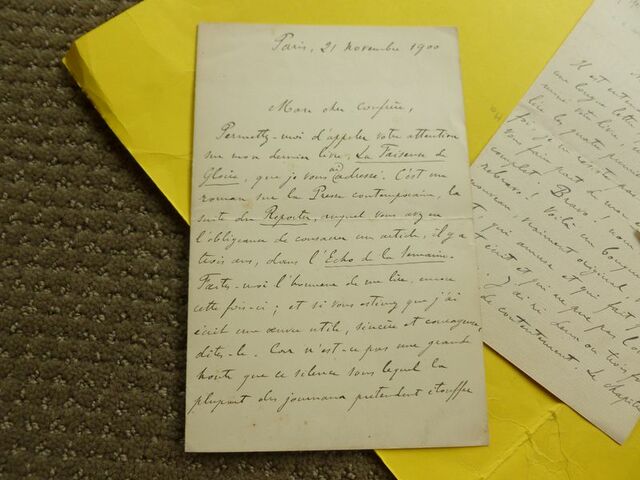 Paris, 21 novembre 1900
Mon cher confrère,
Permettez-moi d'appeler votre attention
sur mon dernier livre, La Faiseuse de
Gloire, que je vous ai adressé. C'est un
roman sur la Presse contemporaine, la
suite du Reporter, auquel vous avez eu
l'obligeance de consacrer un article, il y a
trois ans, dans l'Echo de la Semaine.
Faites-moi l'honneur de me lire, encore
cette fois-ci ; et si vous estimez que j'ai
écrit une œuvre utile, sincère et courageuse,
dites-le. Car n'est-ce pas une grande
honte que ce silence sous lequel la
plupart des journaux prétendent étouffer
Il est
une longue lettre
votre livre,
lu les quatre premiers
foi, je
vous faire part de mon
complet ! Bravo !
rebravo ! Voilà un bouquin
nouveau, vraiment original,
qui amuse et qui fait
et qui ne
J'ai ri deux ou trois fois
de contentement. Le chapitre